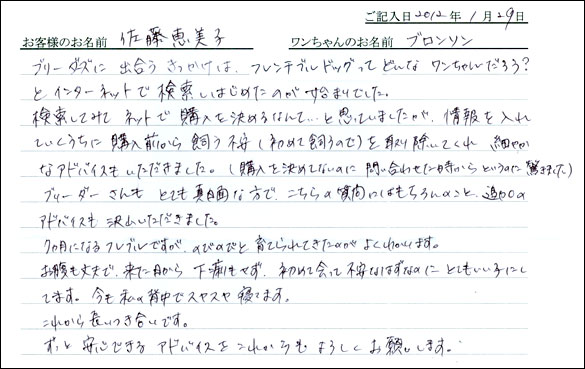 ご記入日 2012年 1月 29日
お客様のお名前 佐藤恵美子 ワンちゃんのお名前 ブロンソン
ブリーダーズに出会うきっかけは、フレンチブルドッグってどんなワンちゃんだろう?
とインターネットで検索しはじめたのが始まりでした。
検索してみてネットで購入を決めるなんて…と思っていましたが、情報を入れ
ていくうちに購入前から飼う不安(初めて飼うので)を取り除いてくれ 細やか
なアドバイスもいただきました。(購入を決めてないのに問い合わせた時からというのに驚きました)
ブリーダーさんもとても真面目な方で、こちらの質問にはもちろんのこと、追加の
アドバイスも沢山いただきました。
7か月になるフレブルですが、のびのびと育てられてきたのがよくわかります。
お腹も丈夫で、来た日から下痢もせず、初めて会って不安なはずなのにとてもいい子にし
てます。今も私の背中でスヤスヤ寝てます。
これから長いつき合いです。
ずっと安心できるアドバイスをこれからもよろしくお願いします。